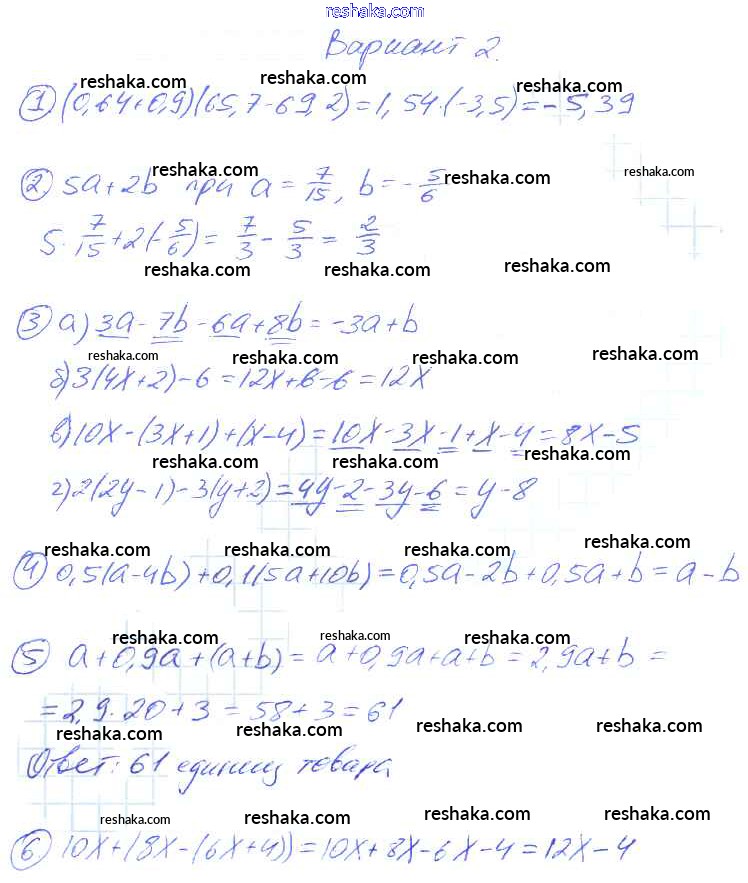 reshaka.com
Вариант 2.
reshaka.com reshaka.com reshaka.com
① (0,64+0,9)(65,7-69,2)=1,54·(-3,5)=-5,39
reshaka.com reshaka.com reshaka.com
② 5a+2b при a = 7/15, b = -5/6
5·7/15+2(-5/6)= 7/3 - 5/3 = 2/3
reshaka.com reshaka.com reshaka.com
③ а) 3a-7b-6a+8b=-3a+b
reshaka.com reshaka.com reshaka.com reshaka.com
б) 3(4x+2)-6=12x+6-6=12x
reshaka.com reshaka.com reshaka.com
в) 10x-(3x+1)+(x-4)=10x-3x-1+x-4=8x-5
reshaka.com reshaka.com reshaka.com
г) 2(2y-1)-3(y+2)=4y-2-3y-6=y-8
reshaka.com reshaka.com reshaka.com reshaka.com
④ 0,5(a-4b)+0,1(5a+10b)=0,5a-2b+0,5a+b=a-b
reshaka.com reshaka.com reshaka.com
⑤ a+0,9a+(a+b)=a+0,9a+a+b=2,9a+b=
=2,9·20+3=58+3=61
reshaka.com reshaka.com reshaka.com reshaka.com
Ответ: 61 единиц товара
reshaka.com reshaka.com reshaka.com reshaka.com
⑥ 10x+(8x-(6x+4))=10x+8x-6x-4=12x-4